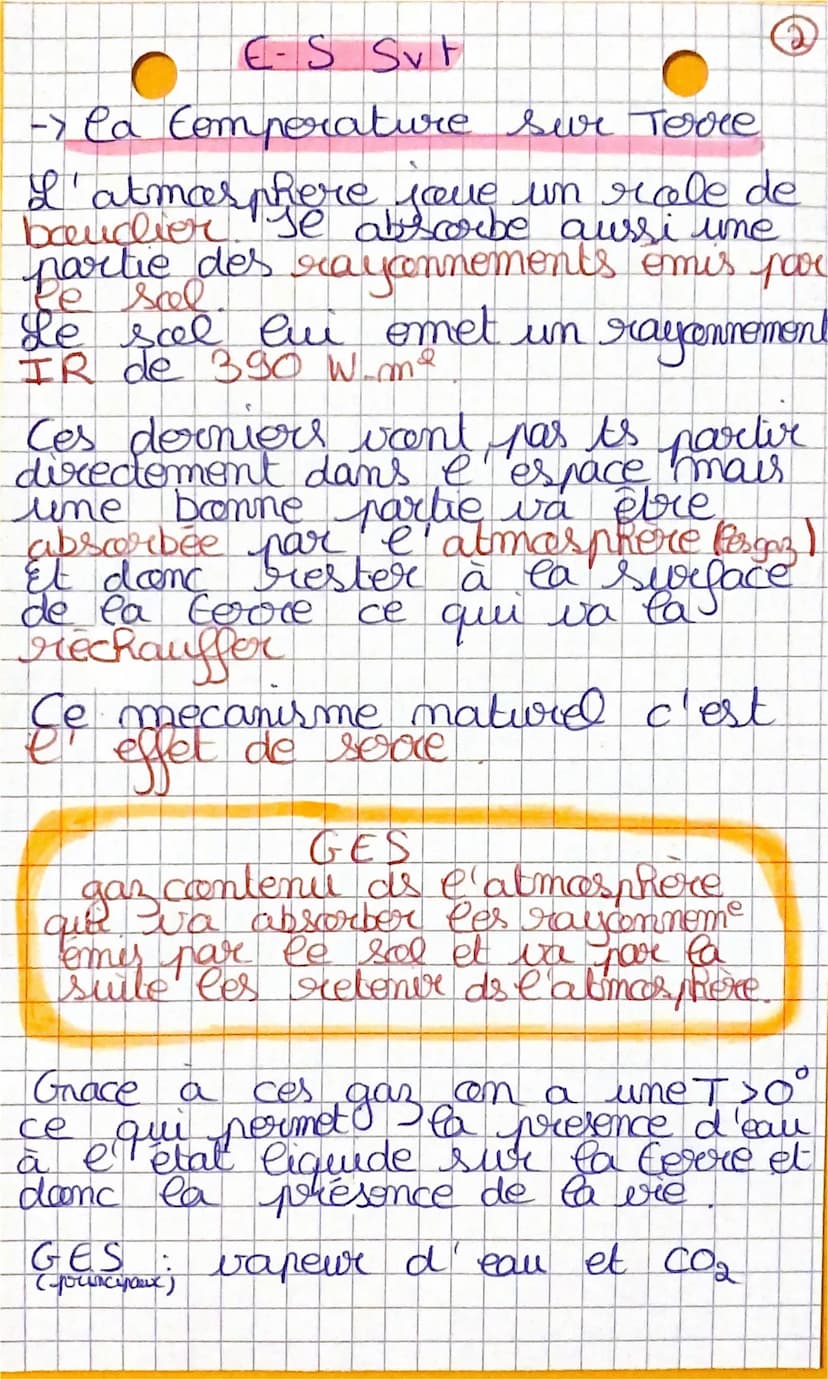 2
E-S Svt
-> la temperature sur Terre
L'atmosphere joue un role de
bouclier. Il absorbe aussi une
partie des rayonnements émis par
le sol.
Le sol lui emet un rayonnement
IR de 390 W.m²
Ces derniers vont pas ts partir
directement dans l'espace mais
une bonne partie va être
absorbée par l'atmosphère (les gaz)
Et donc rester à la surface
de la terre ce qui va la
réchauffer
Ce mecanisme naturel c'est
l'effet de serre.
GES
gaz contenu ds l'atmosphère
qui va absorber les rayonneme
émis par le sol et va par la
suite les retenir ds l'atmosphère.
Grace à ces gaz on a une T>0°
ce qui permet la presence d'eau
à l'état liquide sur la terre et
donc la présence de la vie.
GES : vapeur d'eau et CO₂
(principaux)